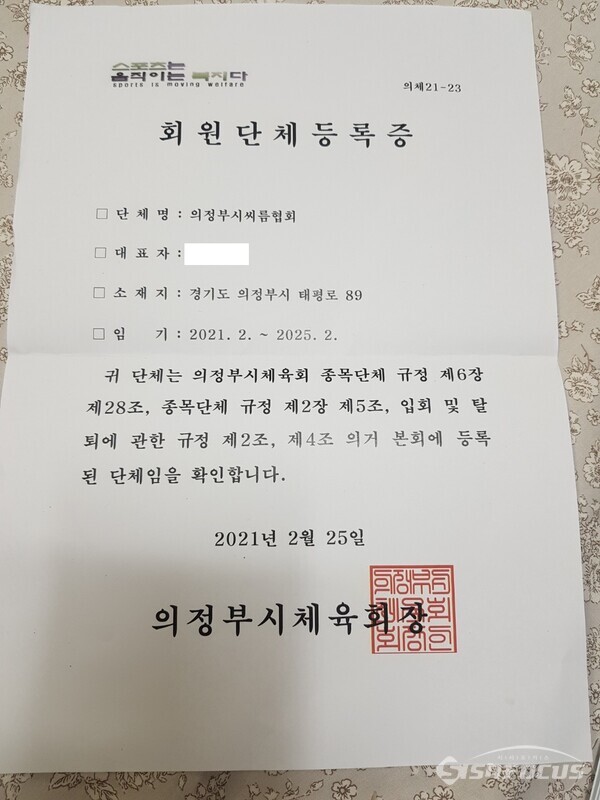 스포츠는
움직이는 복지다
sports is moving welfare
의체21-23
회원단체등록증
□ 단 체 명 : 의정부시씨름협회
□ 대 표 자 :
□ 소 재 지 : 경기도 의정부시 태평로 89
□ 임 기 : 2021. 2. ~ 2025. 2.
귀 단체는 의정부시체육회 종목단체 규정 제6장
제28조, 종목단체 규정 제2장 제5조, 입회 및 탈
퇴에 관한 규정 제2조, 제4조 의거 본회에 등록
된 단체임을 확인합니다.
2021년 2월 25일
의정부시체육회장
SISAFOCUS